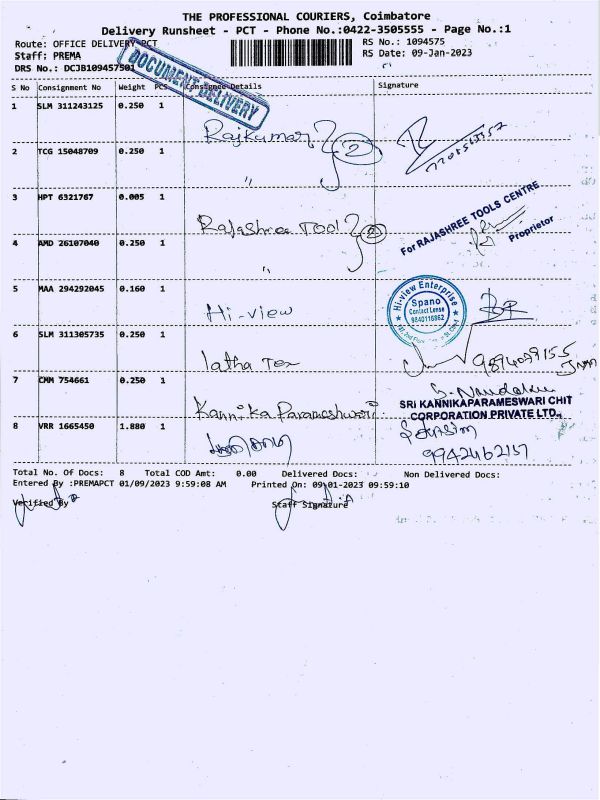 THE PROFESSIONAL COURIERS, Coimbatore
Delivery Runsheet - PCT - Phone No.:0422-3505555 - Page No.:1
Route: OFFICE DELIVERY PCT
RS No.: 1094575
Staff: PREMA
RS Date: 09-Jan-2023
DRS No.: DCJB109457501
DOCUMENT DELIVERY
S No Consignment No Weight PCS Consignee Details Signature
1 SLM 311243125 0.250 1
Rajkumar 2
2 TCG 15048709 0.250 1
"
3 HPT 6321767 0.005 1
Rajashree Tool 2
For RAJASHREE TOOLS CENTRE
Proprietor
4 AMD 26107040 0.250 1
"
5 MAA 294292045 0.160 1
Hi-view
Hi-view Enterprise
Spano
Contact Lense
9840116862
6 SLM 311305735 0.250 1
latha Tex
7 CMM 754661 0.250 1
Kannika Parameshwari
SRI KANNIKAPARAMESWARI CHIT
CORPORATION PRIVATE LTD.,
8 VRR 1665450 1.880 1
9942462157
Total No. Of Docs: 8 Total COD Amt: 0.00 Delivered Docs: Non Delivered Docs:
Entered By :PREMAPCT 01/09/2023 9:59:08 AM Printed On: 09-01-2023 09:59:10
Verified By
Staff Signature